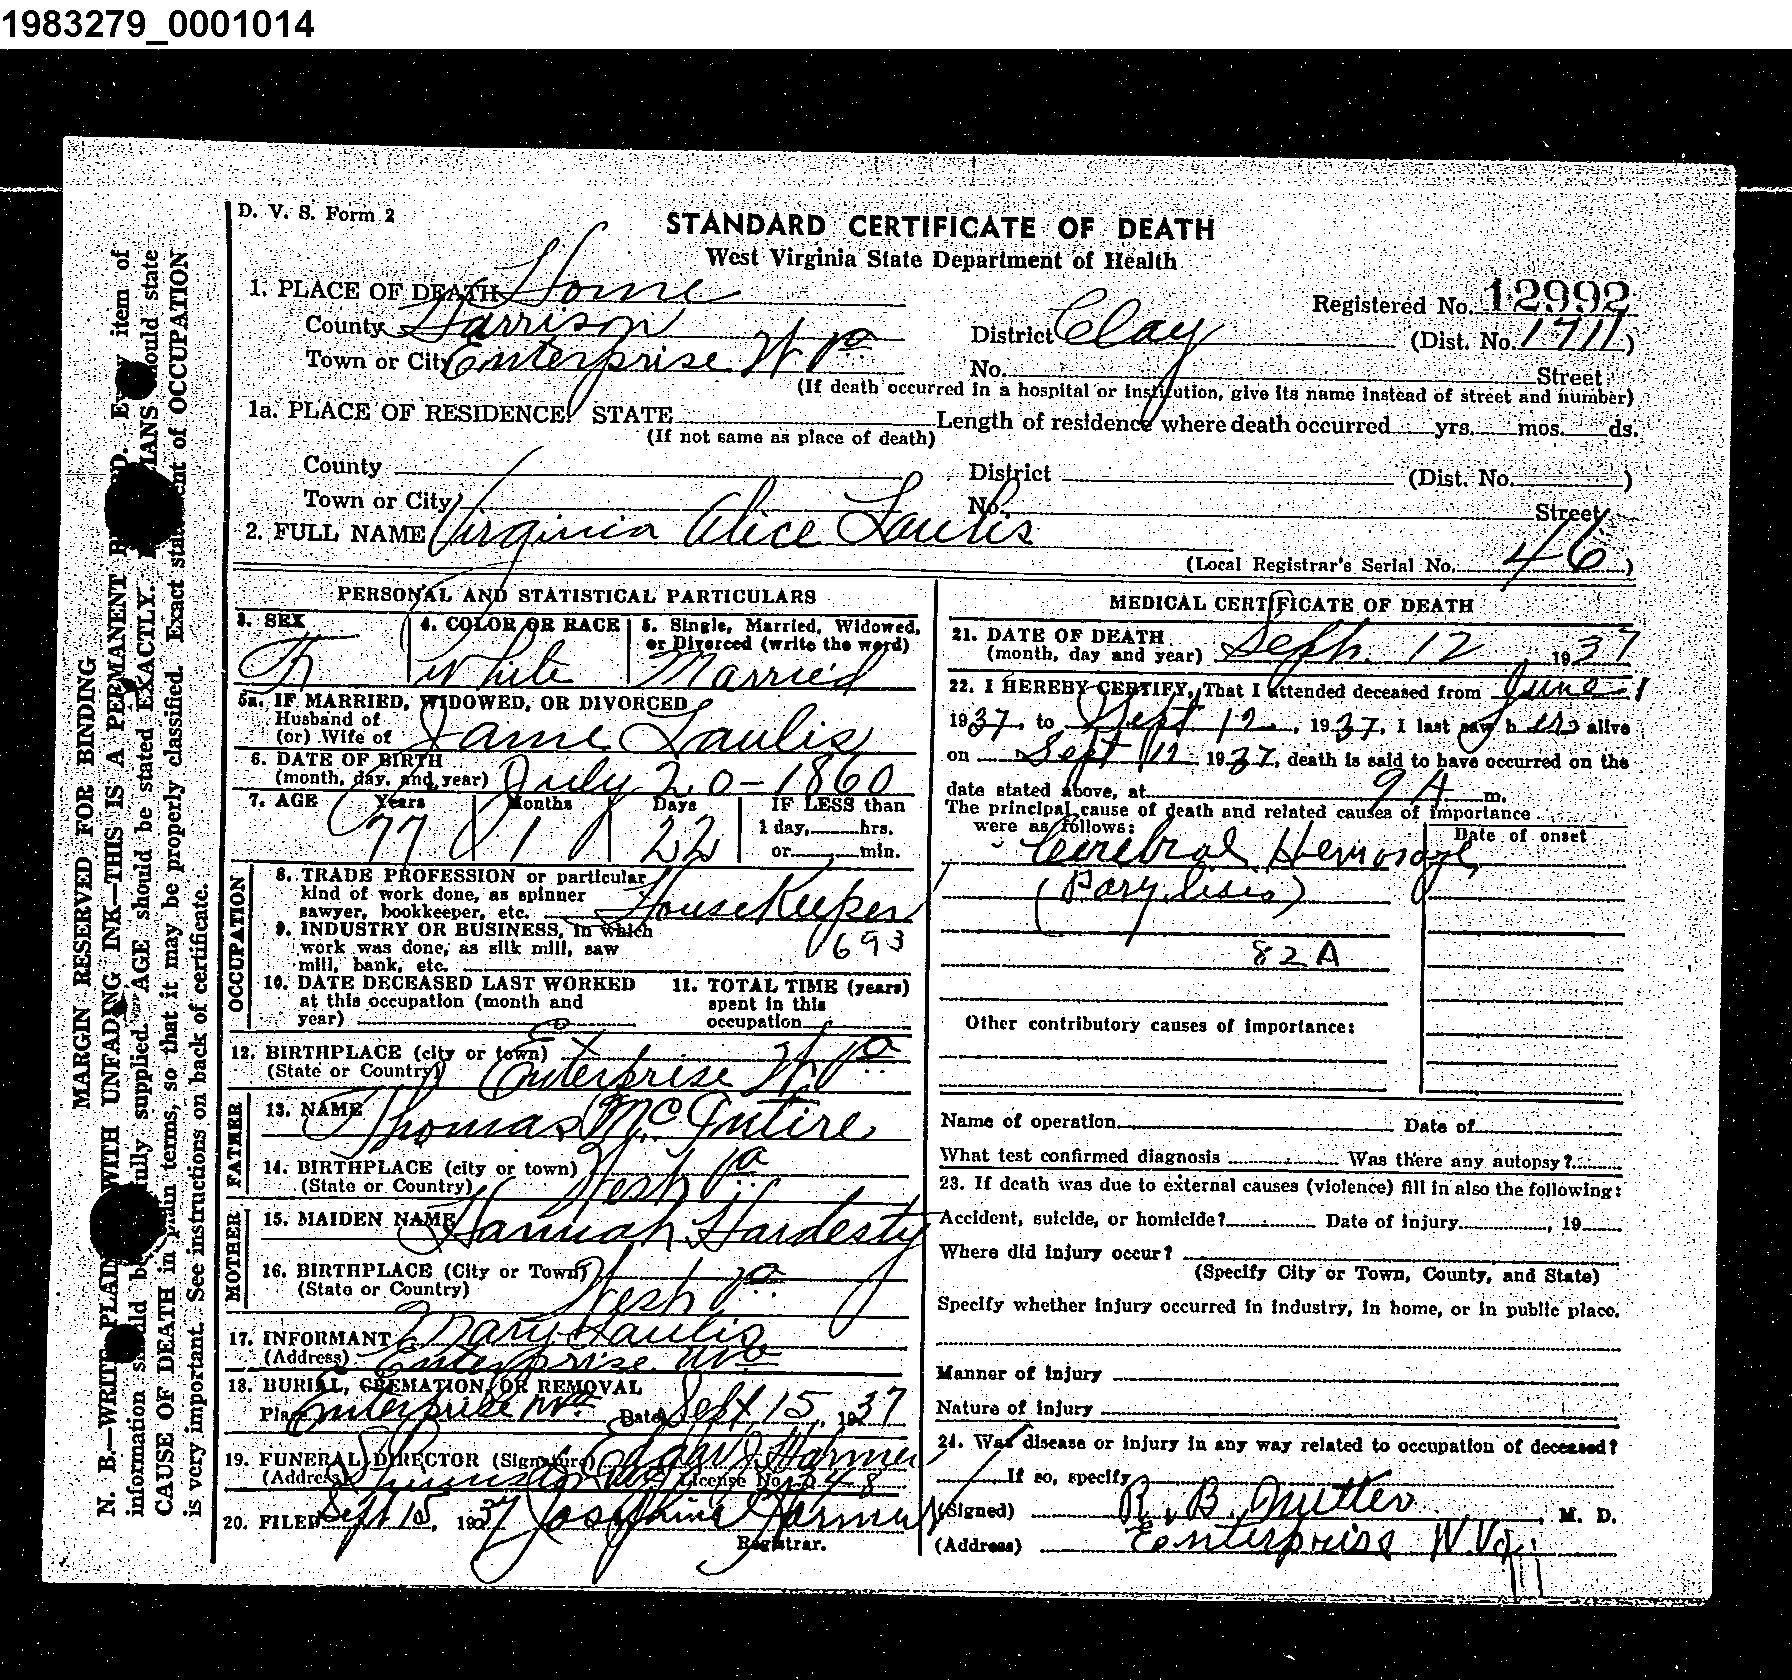 1983279_0001014
D. V. S. Form 2
STANDARD CERTIFICATE OF DEATH
West Virginia State Department of Health
1. PLACE OF DEATH Home
Registered No. 12992
County Harrison District Clay (Dist. No. 1711)
Town or City Enterprise W Va No. Street
(If death occurred in a hospital or institution, give its name instead of street and number)
1a. PLACE OF RESIDENCE: STATE Length of residence where death occurred yrs. mos. ds.
(If not same as place of death)
County District (Dist. No. )
Town or City No. Street
2. FULL NAME Virginia Alice Laulis
(Local Registrar's Serial No. 46)
PERSONAL AND STATISTICAL PARTICULARS
3. SEX F 4. COLOR OR RACE White 5. Single, Married, Widowed, or Divorced (write the word) Married
5a. IF MARRIED, WIDOWED, OR DIVORCED
Husband of
(or) Wife of Jame Laulis
6. DATE OF BIRTH
(month, day, and year) July 20-1860
7. AGE Years 77 Months 1 Days 22 IF LESS than
1 day, hrs.
or min.
OCCUPATION
8. TRADE PROFESSION or particular
kind of work done, as spinner
sawyer, bookkeeper, etc. HouseKeeper
9. INDUSTRY OR BUSINESS, in which
work was done, as silk mill, saw 693
mill, bank, etc.
10. DATE DECEASED LAST WORKED
at this occupation (month and
year)
11. TOTAL TIME (years)
spent in this
occupation
12. BIRTHPLACE (city or town)
(State or Country) Enterprise W. Va
FATHER
13. NAME Thomas McIntire
14. BIRTHPLACE (city or town)
(State or Country) West Va
MOTHER
15. MAIDEN NAME Hannah Hardesty
16. BIRTHPLACE (City or Town)
(State or Country) West Va
17. INFORMANT Mary Laulis
(Address) Enterprise W Va
18. BURIAL, CREMATION, OR REMOVAL
Place Enterprise W Va Date Sept 15, 1937
19. FUNERAL DIRECTOR (Signature) Harmer
(Address) Shinnston W Va License No.
20. FILED Sept 15, 1937 Josephine Harmer
Registrar.
MEDICAL CERTIFICATE OF DEATH
21. DATE OF DEATH
(month, day and year) Sept. 12 1937
22. I HEREBY CERTIFY, That I attended deceased from June 1
1937, to Sept 12, 1937, I last saw her alive
on Sept 12 1937, death is said to have occurred on the
date stated above, at 9 A m.
The principal cause of death and related causes of importance
were as follows: Date of onset
Cerebral Hemorage
82A
Other contributory causes of importance:
Name of operation Date of
What test confirmed diagnosis Was there any autopsy?
23. If death was due to external causes (violence) fill in also the following:
Accident, suicide, or homicide? Date of injury , 19
Where did injury occur?
(Specify City or Town, County, and State)
Specify whether injury occurred in industry, in home, or in public place.
Manner of injury
Nature of injury
24. Was disease or injury in any way related to occupation of deceased?
If so, specify
(Signed) R. B. Nutter, M. D.
(Address) Enterprise W. Va.
MARGIN RESERVED FOR BINDING
N. B.—WRITE PLAINLY WITH UNFADING INK—THIS IS A PERMANENT RECORD. Every item of
information should be carefully supplied. AGE should be stated EXACTLY. PHYSICIANS should state
CAUSE OF DEATH in plain terms, so that it may be properly classified. Exact statement of OCCUPATION
is very important. See instructions on back of certificate.